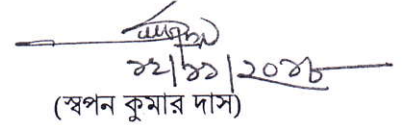 ২২|১১|২০১৮
(স্বপন কুমার দাস)